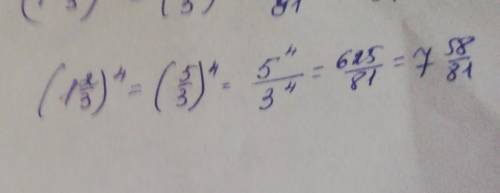 (1 2/3)^4 = (5/3)^4 = 5^4/3^4 = 625/81 = 7 58/81